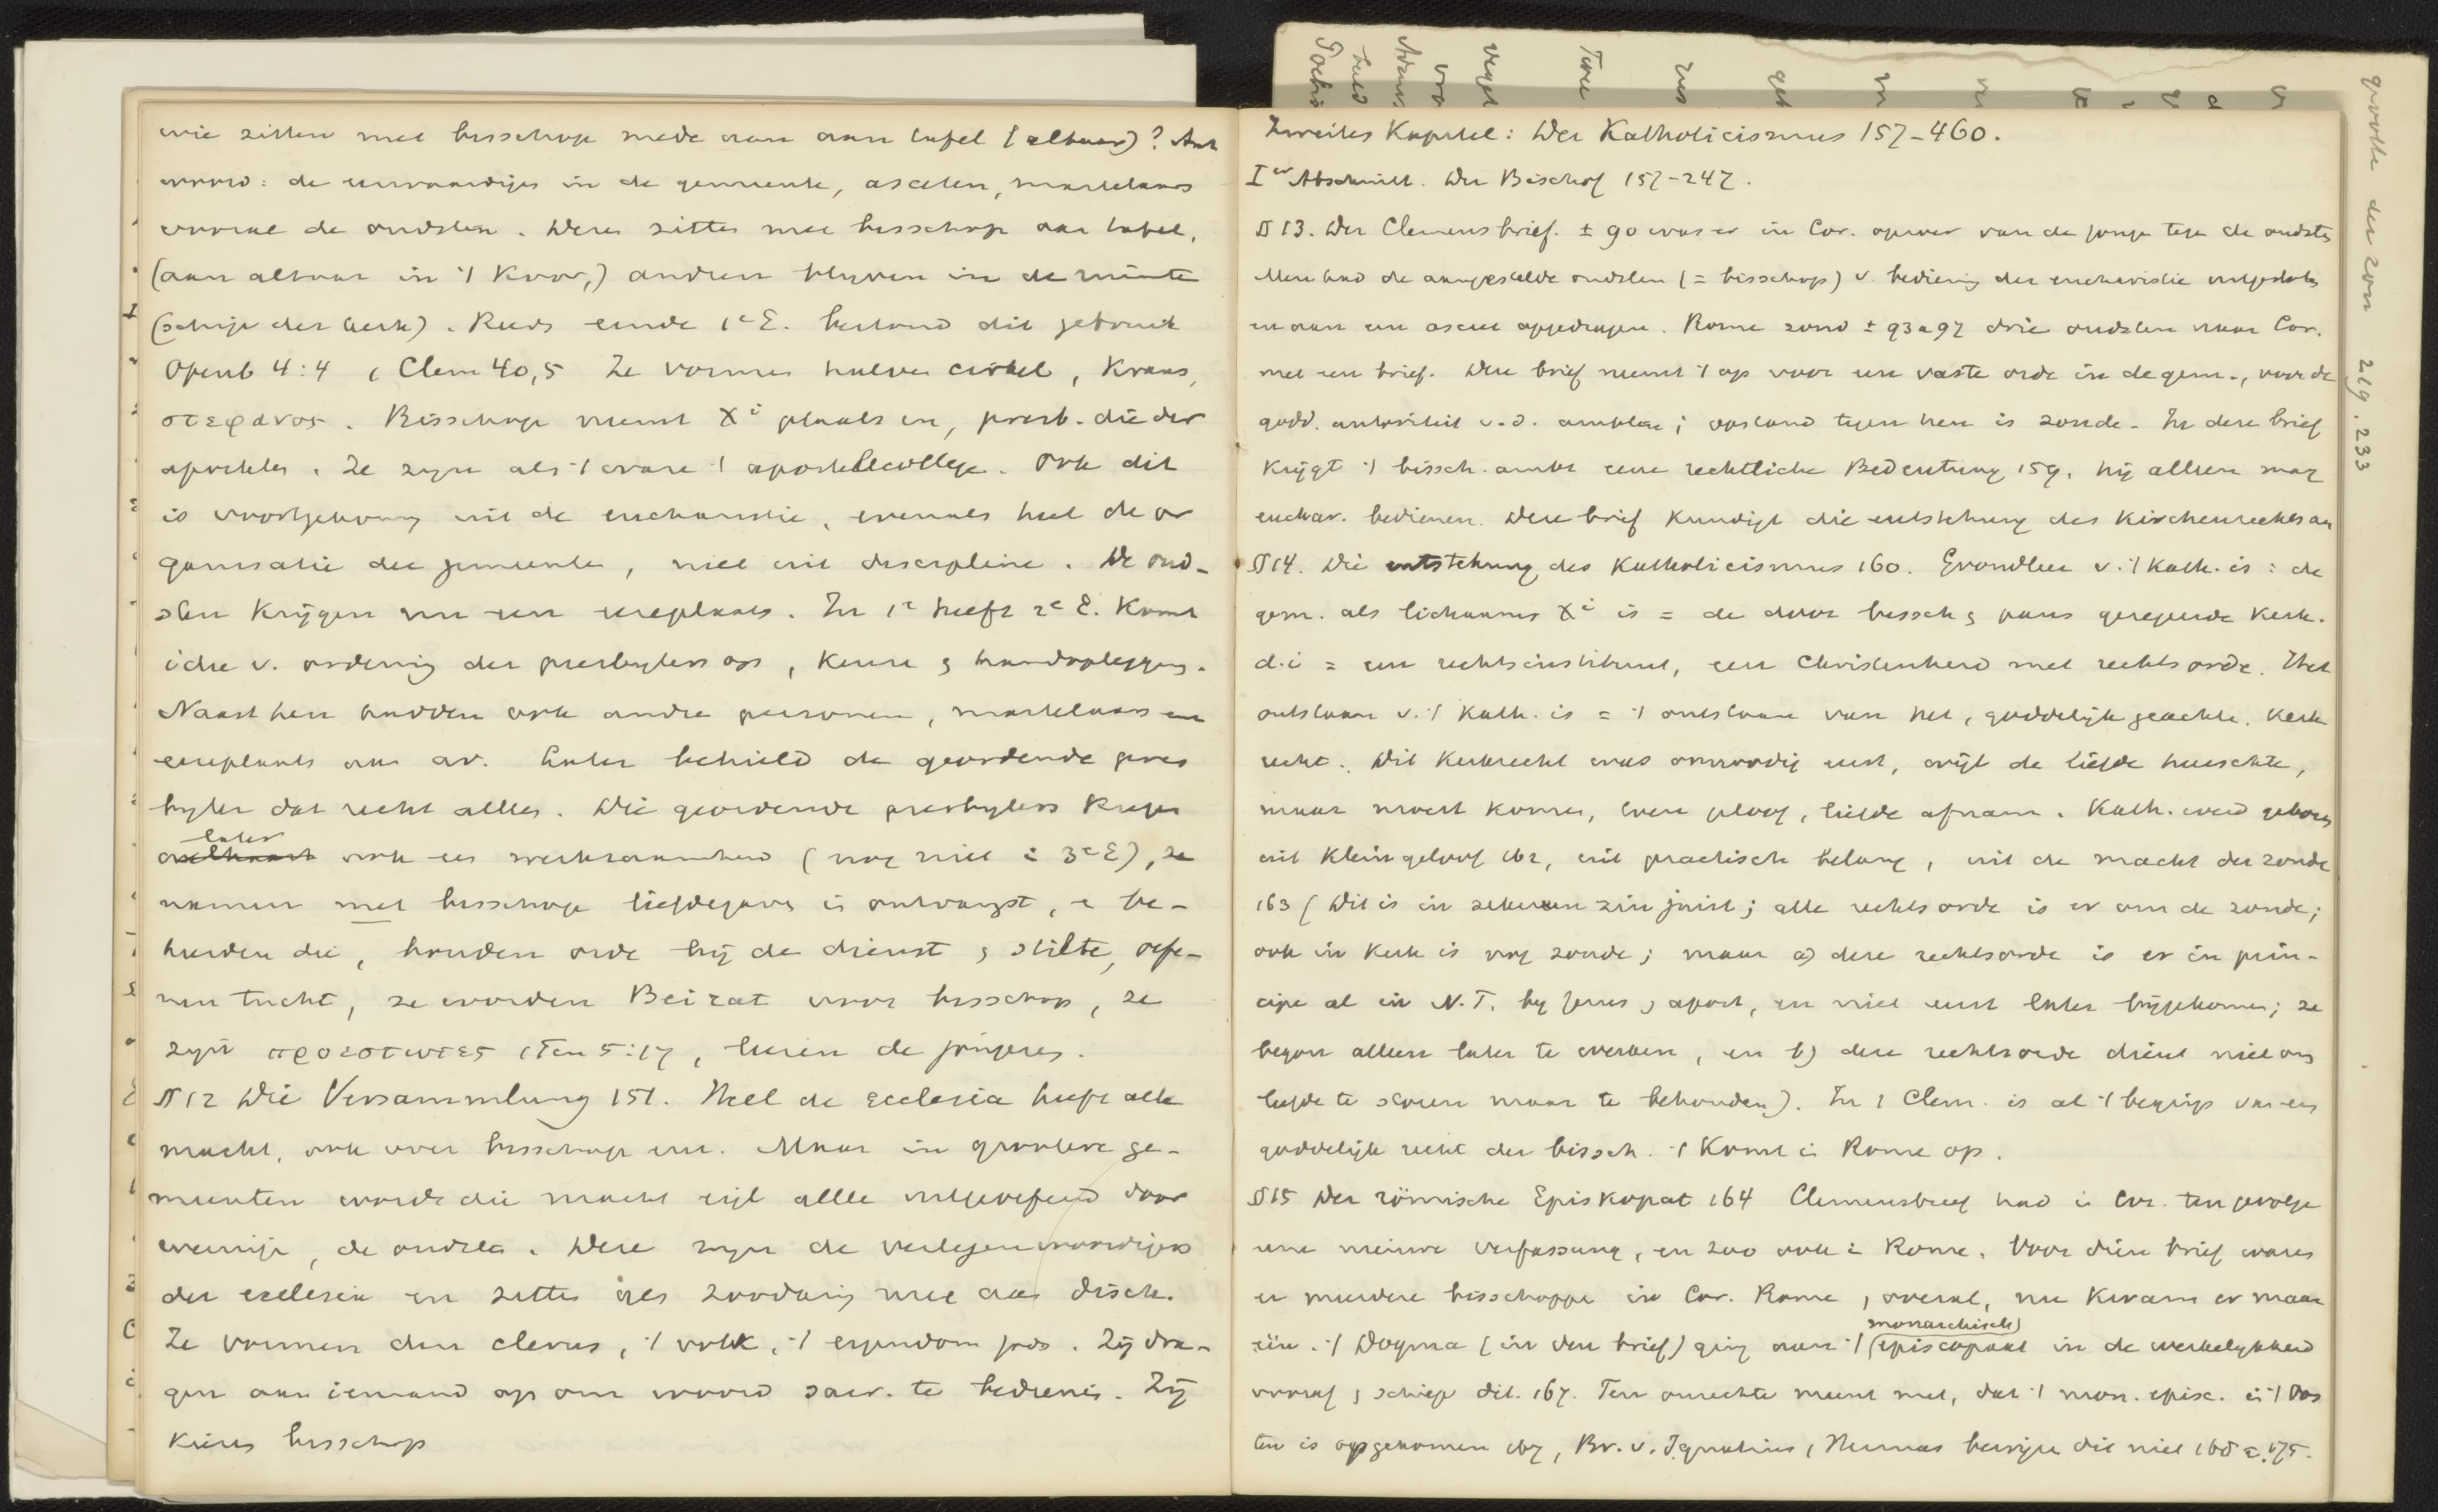 wie zitten met bisschop mede aan aan tafel (altaar)? Ant
woord: de eerwaardigen in de gemeente, asceten, martelaars
vooral de oudsten. Deze zitten met bisschop aan tafel,
(aan altaar in 't Koor,) andren blijven in de ruimte
(schip der kerk). Reeds einde 1e E. bestond dit gebruik
Openb 4:4 1 Clem 40,5 Ze vormen halven cirkel, Krans,
στεφανος. Bisschop neemt Xi plaats in, presb. die der
apostelen. Ze zijn als 't ware 't apostelcollege. Ook dit
is voortgekomen uit de eucharistie, evenals heel de or
ganisatie der gemeente, niet uit discipline. De oud-
sten krijgen nu een eereplaats. In 1e helft 2e E. komt
idee v. ordening der presbyters op, keuze & handoplegging.
Naast hen hadden ook andre personen, martelaars een
eereplaats aan av. Later behield de geordende pres
byter dat recht alleen. Die geordende presbyters kregen
later
ook een werkzaamheid (nog niet i 3e E), ze
namen met bisschop liefdegaven in ontvangst, & be-
heerden die, houden orde bij de dienst & stilte, oefe-
nen tucht, ze worden Beirat voor bisschop, ze
zijn προεστωτες 1 Tim 5:17, leeren de jongeren.
§ 12 Die Versammlung 151. Heel de ecclesia heeft alle
macht, ook over bisschop enz. Maar in grootere ge-
meenten wordt die macht tijdl alleen uitgeoefend door
weinige, de oudsten. Deze zijn de vertegenwoordigers
der ecclesia en zitten als zoodanig mee aan disch.
Ze vormen den clerus, 't volk, 't eigendom gods. Zij dra-
gen aan iemand op om woord sacr. te bedienen. Zij
kiezen bisschop
Zweites Kapitel: Der Katholicismus 157-460.
Ier Abschnitt. Der Bischof 157-247.
§ 13. Der Clemensbrief. ± 90 was er in Cor. oproer van de jonge tegen de oudsten
Men had de aangestelde oudsten (= bisschop) v. bediening der eucharistie uitgesloten
en aan een asceet opgedragen. Rome zond ± 93 a 97 drie oudsten naar Cor.
met een brief. Deze brief neemt 't op voor een vaste orde in de gem., voor de
godd. autoriteit v.d. ambten; opstand tegen hen is zonde. In deze brief
krijgt 't bissch. ambt eene rechtliche Bedeutung 159. hij alleen mag
euchar. bedienen. Deze brief kundigt die entstehung des Kirchenrechts an
§ 14. Die entstehung des Katholicismus 160. Grondleer v. 't Kath. is: de
gem. als lichaam Xi is = de door bissch & paus geregeerde kerk.
d.i = een rechtsinstituut, een Christenheid met rechtsorde. Het
ontstaan v. 't Kath. is = 't ontstaan van het, goddelijk geachte, Kerk
recht. Dit Kerkrecht was onnoodig eerst, wijl de liefde heerschte,
maar moest komen, toen geloof, liefde afnam. Kath. werd geboren
uit Kleingeloof 162, uit practisch belang, uit de macht der zonde
163 (Dit is in zekeren zin juist; alle rechtsorde is er om de zonde;
ook in Kerk is nog zonde; maar a) deze rechtsorde is er in prin-
cipe al in N.T. bij Jezus & apost, en niet eerst later bijgekomen; ze
begon alleen later te werken, en b) deze rechtsorde dient niet om
liefde te storen maar te behouden). In 1 Clem. is al 't begrip van een
goddelijk recht der bissch. 't Komt in Rome op.
§ 15 Der römische Episkopat 164 Clemensbrief had in Cor. ten gevolge
eene nieuwe verfassung, en zoo ook in Rome. Voor dien brief waren
er meerdere bisschoppen in Cor. Rome, overal, nu kwam er maar
één. 't Dogma (in den brief) ging aan 't (monarchisch) episcopaat in de werkelijkheid
vooraf & schiep dit. 167. Ten onrechte meent men, dat 't mon. episc. in 't Oos
ten is opgekomen 167, Br. v. Ignatius, Hermas bewijzen dit niet 168 a. 175.
grootte der zon 219. 233